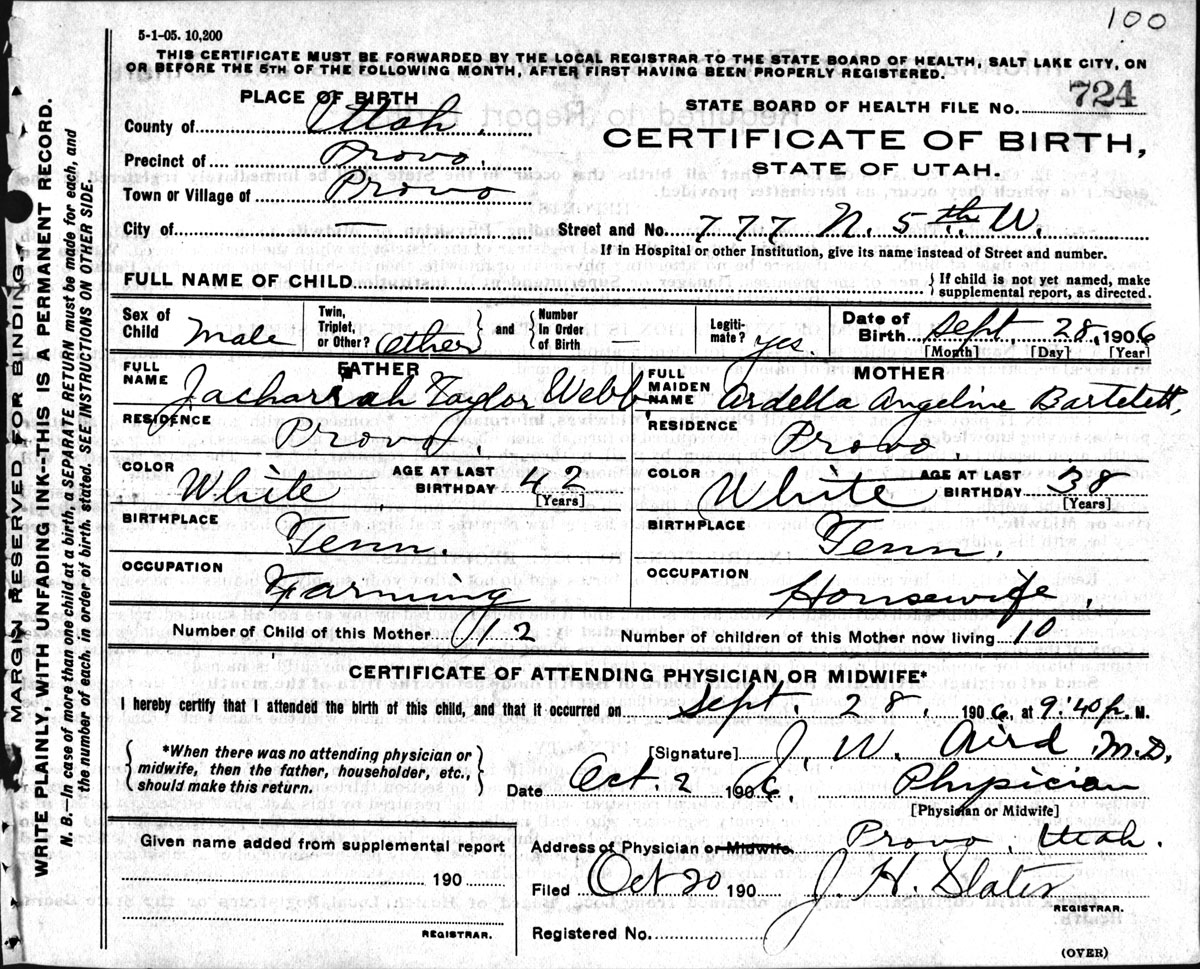 100
5-1-05. 10,200
THIS CERTIFICATE MUST BE FORWARDED BY THE LOCAL REGISTRAR TO THE STATE BOARD OF HEALTH, SALT LAKE CITY, ON
OR BEFORE THE 5TH OF THE FOLLOWING MONTH, AFTER FIRST HAVING BEEN PROPERLY REGISTERED.
PLACE OF BIRTH
STATE BOARD OF HEALTH FILE NO. 724
County of Utah.
CERTIFICATE OF BIRTH,
Precinct of Provo.
STATE OF UTAH.
Town or Village of Provo
City of — Street and No. 777 N. 5th W.
If in Hospital or other Institution, give its name instead of Street and number.
FULL NAME OF CHILD
If child is not yet named, make
supplemental report, as directed.
Sex of Child Male
Twin, Triplet, or Other? Other and Number In Order of Birth —
Legiti-mate? yes.
Date of Birth Sept. 28, 1906
[Month] [Day] [Year]
FATHER
FULL NAME Zachariah Taylor Webb
RESIDENCE Provo.
COLOR White AGE AT LAST BIRTHDAY 42
[Years]
BIRTHPLACE Tenn.
OCCUPATION Farming
MOTHER
FULL MAIDEN NAME Ardella Angeline Bartelett,
RESIDENCE Provo.
COLOR White AGE AT LAST BIRTHDAY 38
[Years]
BIRTHPLACE Tenn.
OCCUPATION Housewife.
Number of Child of this Mother 12 Number of children of this Mother now living 10
CERTIFICATE OF ATTENDING PHYSICIAN OR MIDWIFE*
I hereby certify that I attended the birth of this child, and that it occurred on Sept. 28. 1906, at 9:40 p. M.
*When there was no attending physician or
midwife, then the father, householder, etc.,
should make this return.
[Signature] J. W. Aird M.D.
Date Oct. 2 1906. Physician
[Physician or Midwife]
Given name added from supplemental report
190
REGISTRAR.
Address of Physician or Midwife Provo, Utah.
Filed Oct 20 190 J. H. Slater
REGISTRAR.
Registered No.
(OVER)
MARGIN RESERVED FOR BINDING
WRITE PLAINLY, WITH UNFADING INK--THIS IS A PERMANENT RECORD.
N. B.--In case of more than one child at a birth, a SEPARATE RETURN must be made for each, and
the number of each, in order of birth, stated. SEE INSTRUCTIONS ON OTHER SIDE.